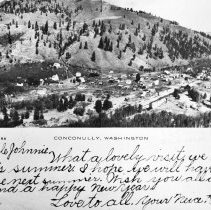 CONCONULLY, WASHINGTON
Johnnie,
What a lovely visit we
summer. I hope we will have
next summer. Wish you all
and a happy New Year
Love to all. Your Neva.